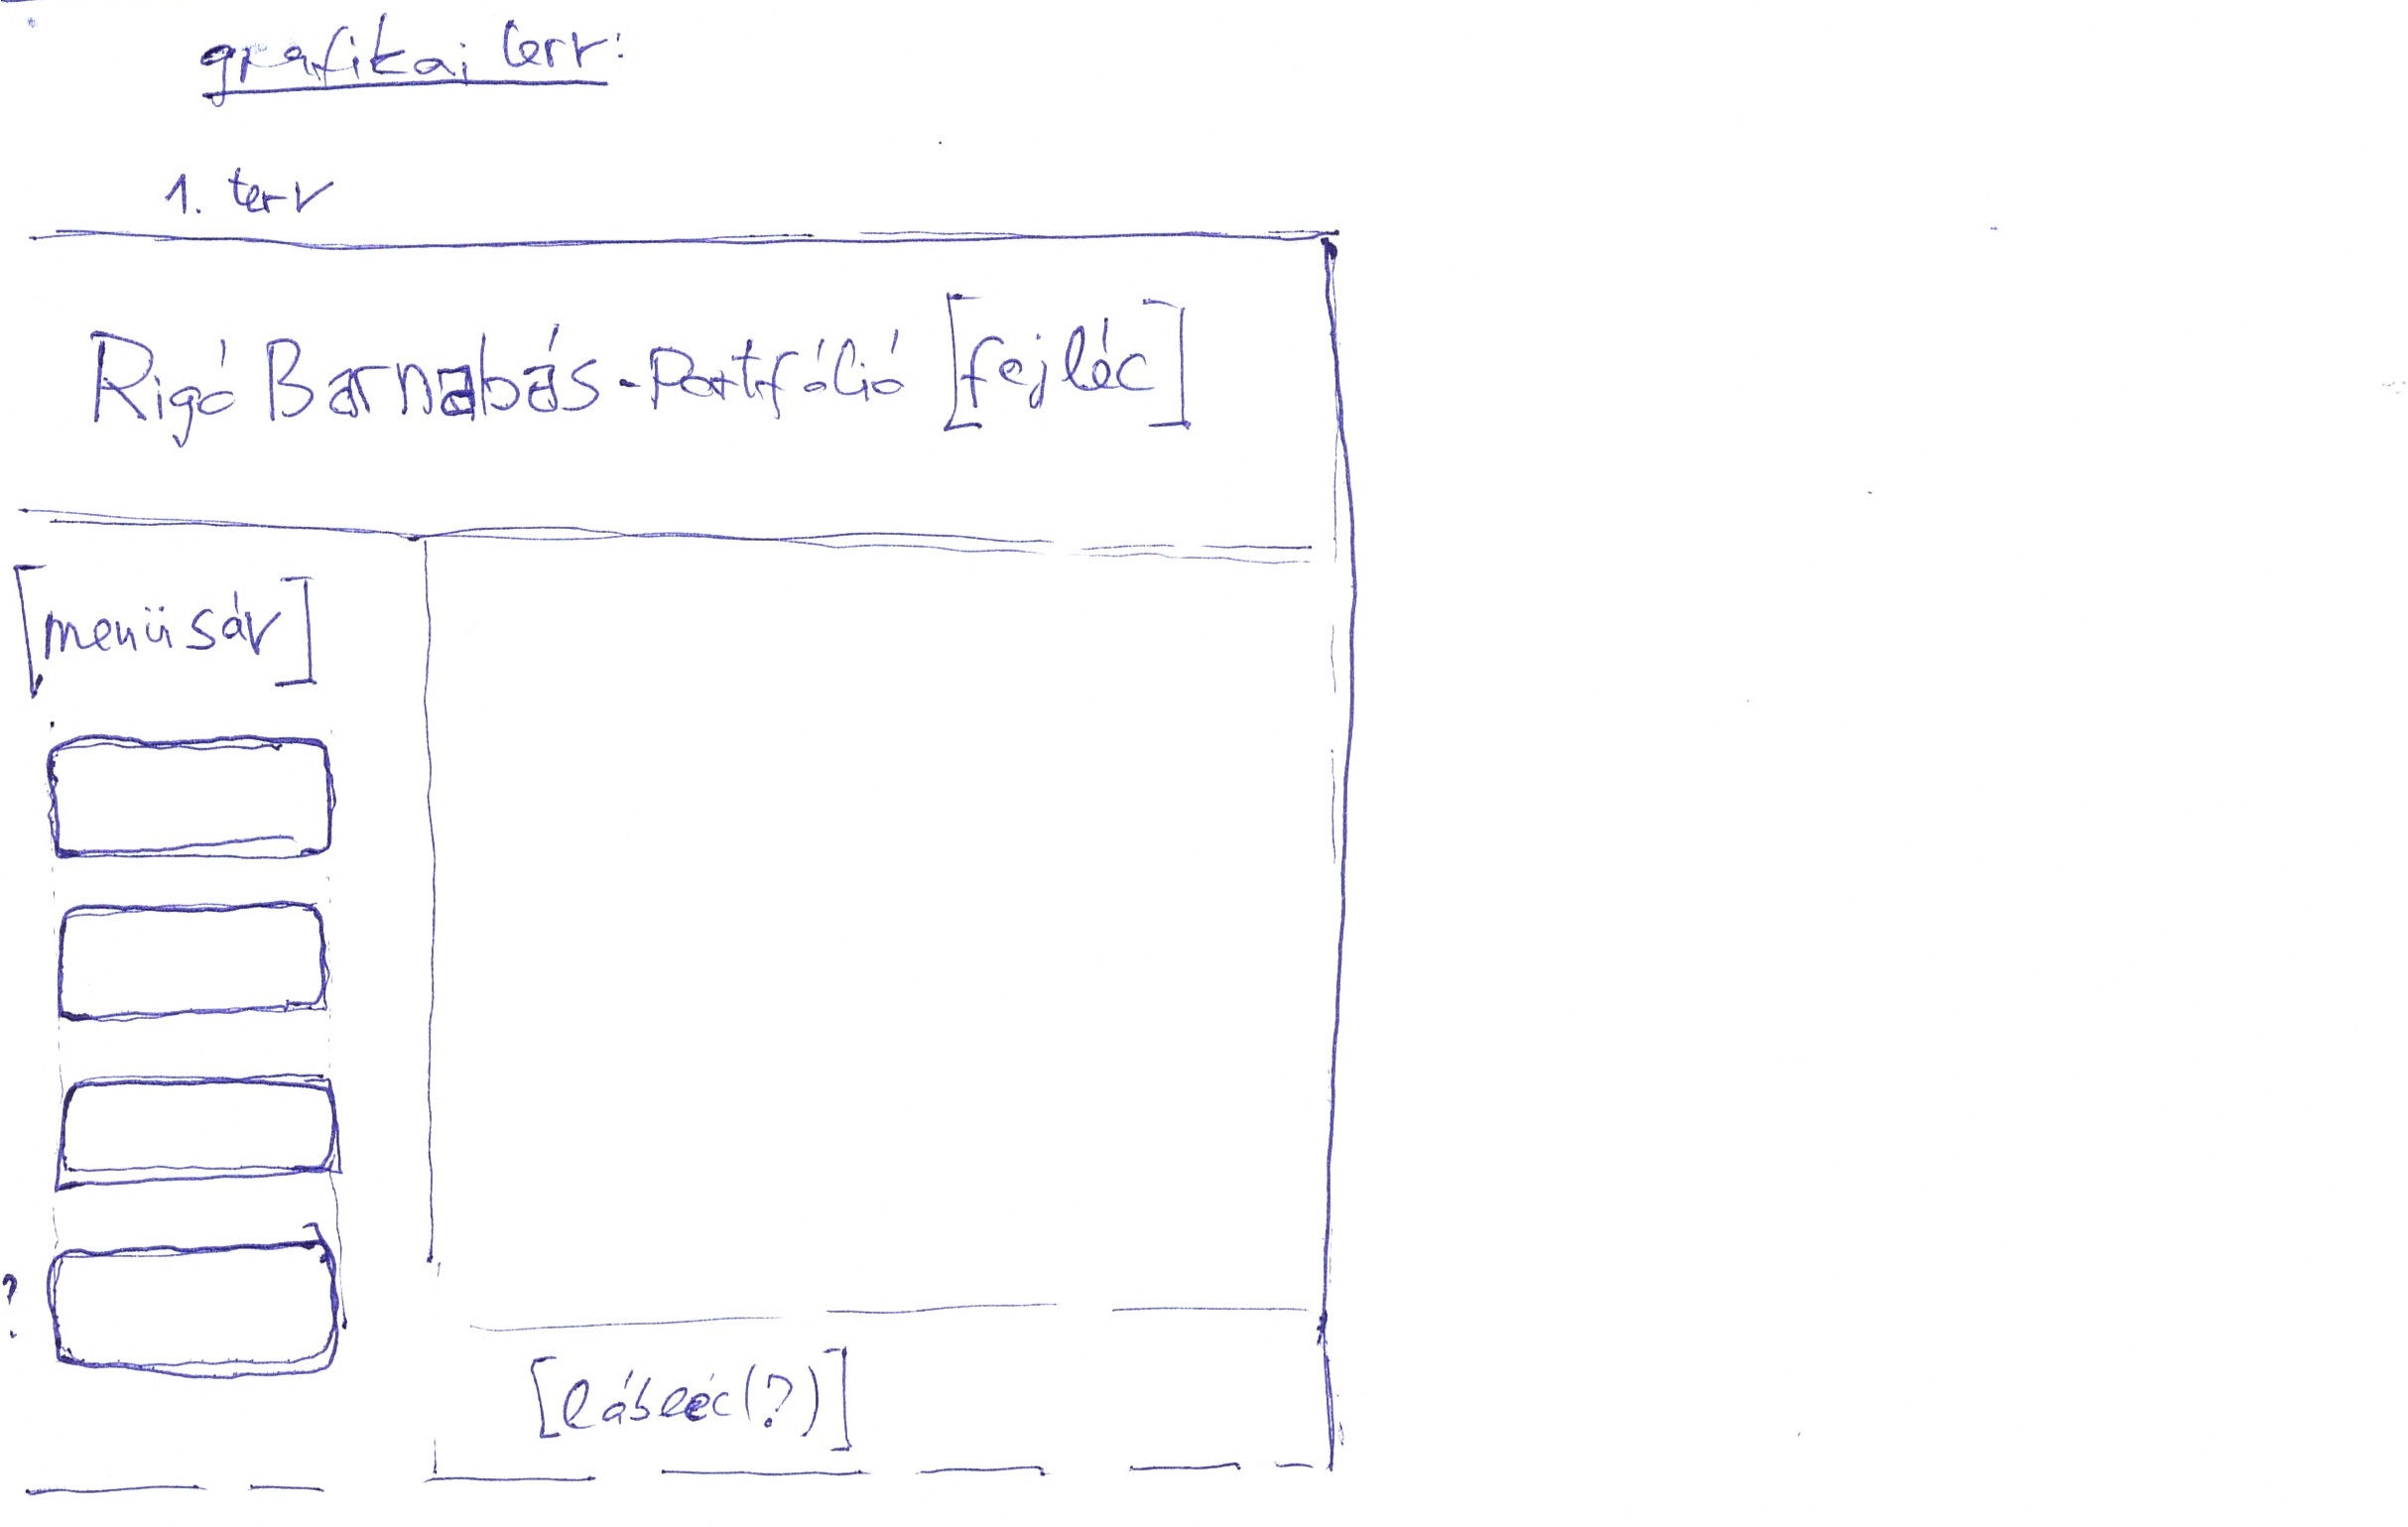 grafikai terv:
1. terv
Rigó Barnabás - Portfólió [fejléc]
[menüsáv]
?
[lábléc(?)]